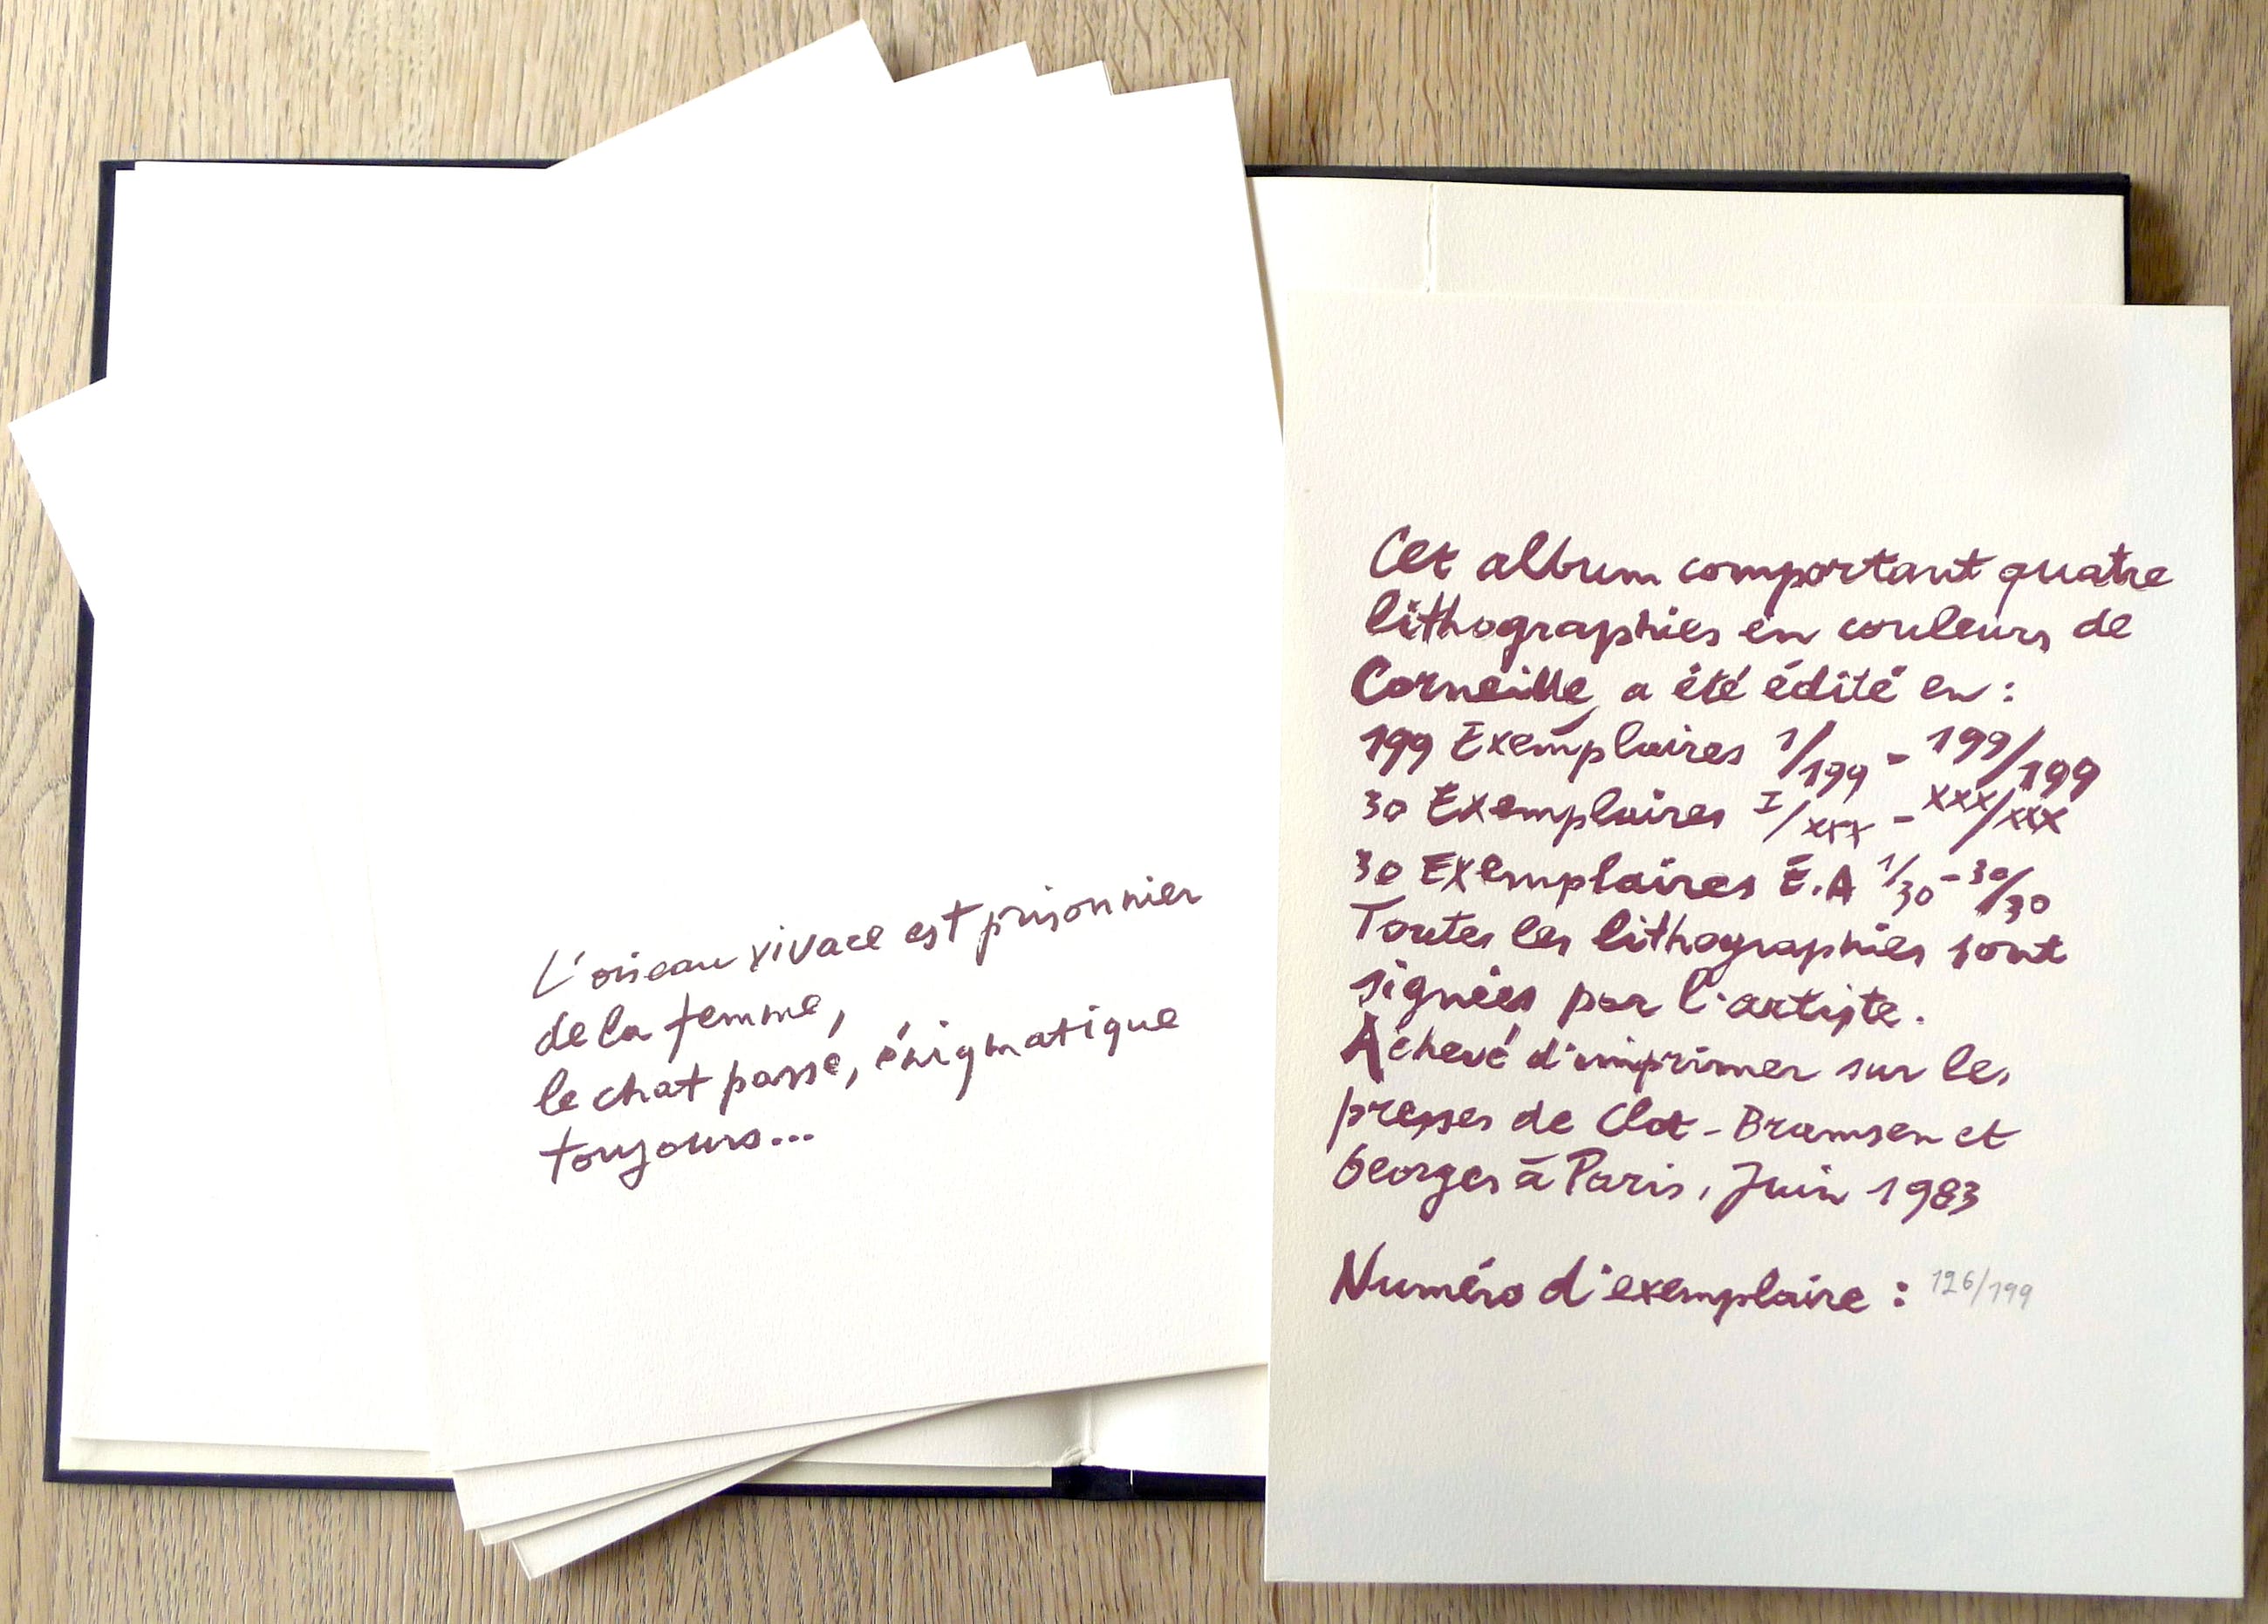 L'oiseau vivace est prisonnier
de la femme,
le chat passe, énigmatique
toujours...
Cet album comportant quatre
lithographies en couleurs de
Corneille, a été édité en :
199 Exemplaires 1/199 - 199/199
30 Exemplaires I/XXX - XXX/XXX
30 Exemplaires E.A 1/30 - 30/30
Toutes les lithographies sont
signées par l'artiste.
Achevé d'imprimer sur les
presses de Clot - Bramsen et
Georges à Paris, Juin 1983
Numéro d'exemplaire : 126/199